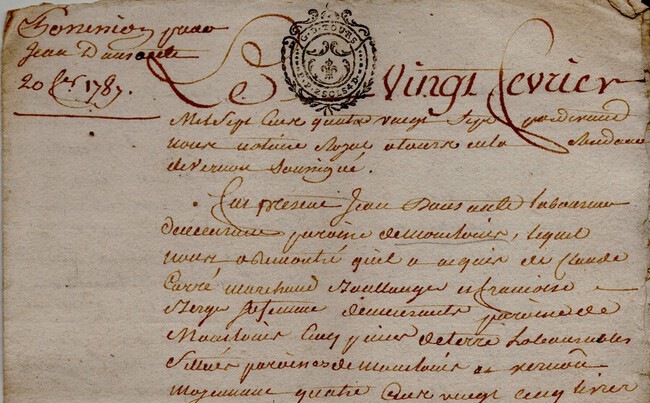 Jean Dansault
20 fer 1787.
G. D. TOURS
Le vingt fevrier
Mil Sept Cent quatre vingt Sept pardevant
nous notaire Royal a tours en la Residence
de vernou Soussigné.
Est présent Jean Dansault laboureur
demeurant paroisse de monlouis, lequel
nous a Remontré qu'il a acquis de Claude
Carré marchand Boullanger et francoise
Berge sa femme demeurants paroisse de
Monlouis Cinq pieces de terre Labourables
Situés paroisses de monlouis et vernou
moyennant quatre Cent vingt Cinq livres